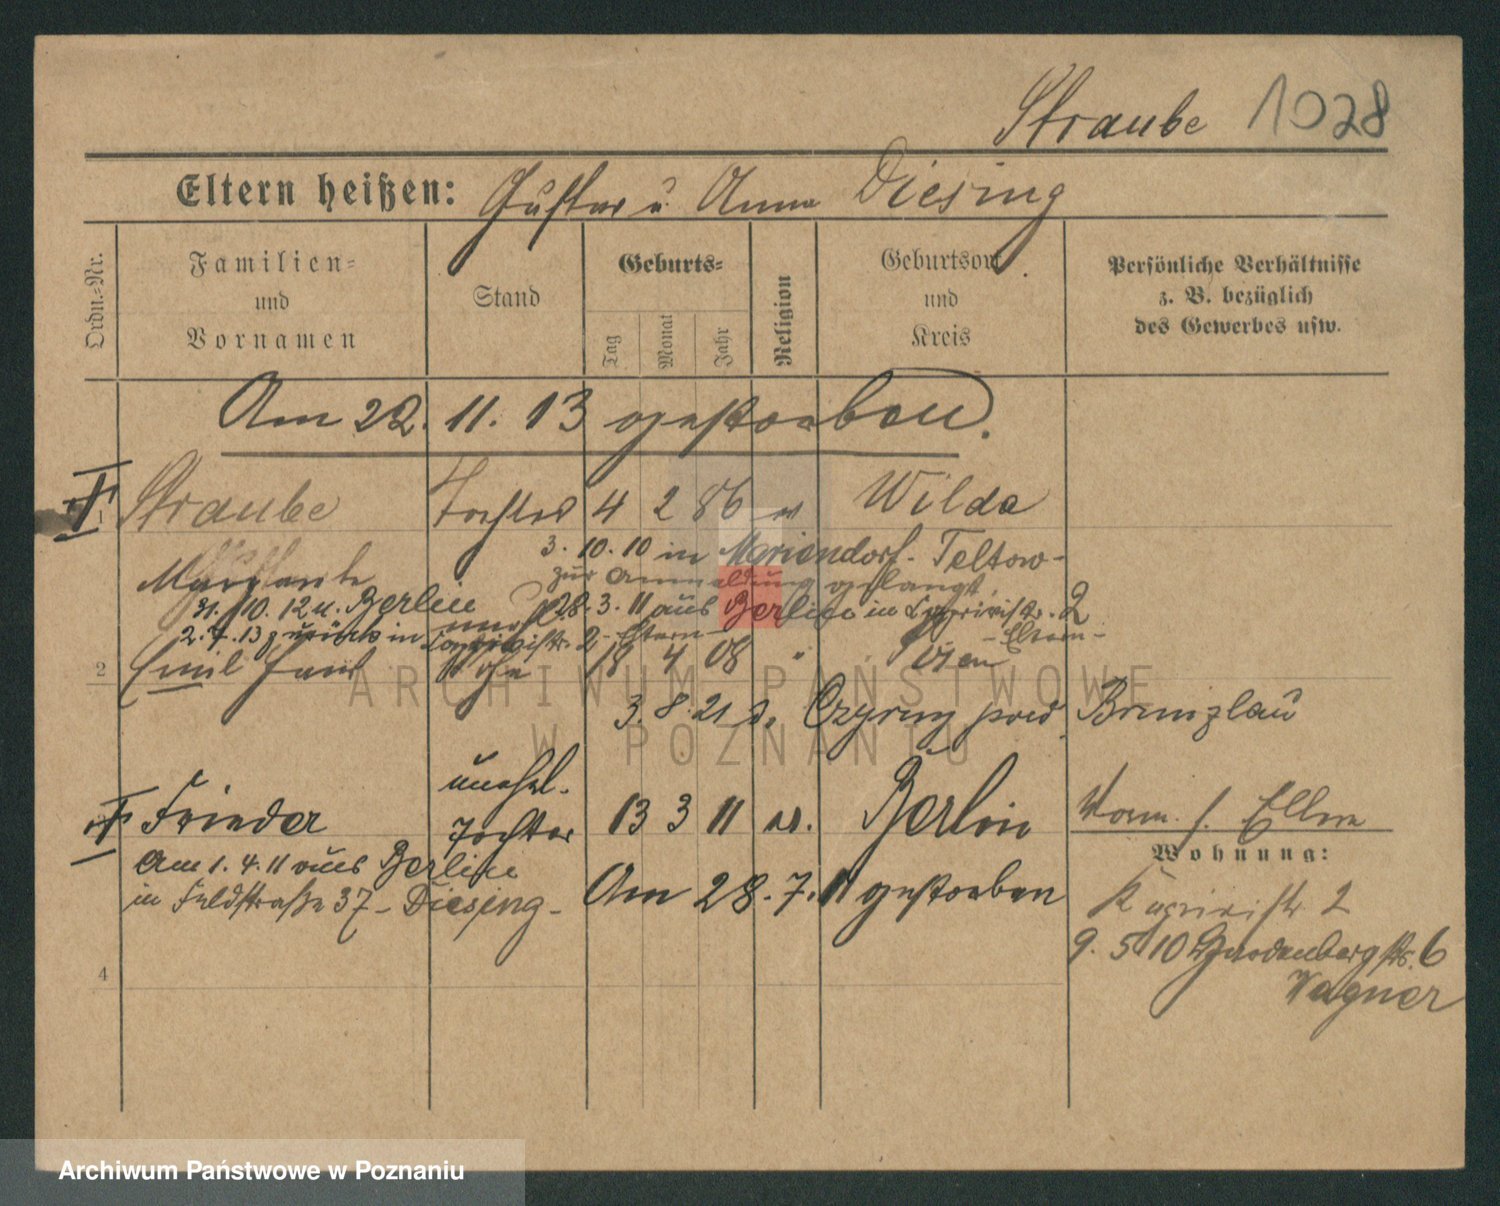 Straube 1028
Eltern heißen: Gustav u. Anna Diesing
Ordn.-Nr.
Familien-
und
Vornamen
Stand
Geburts-
Tag
Monat
Jahr
Religion
Geburtsort
und
Kreis
Persönliche Verhältnisse
z. B. bezüglich
des Gewerbes usw.
Am 22. 11. 13 gestorben.
1 Straube Tochter 4 2 86 Wilda
3. 10. 10 in Mariendorf-Teltow-
Margareth
zur Anmeldung gelangt
31. 10. 12 n. Berlin
28. 3. 11 aus Berlin in Caprivistr. 2
2. 7. 13 zurück in Caprivistr. 2 - Eltern -
- Eltern -
2 Emil 18 4 08 " Posen
3. 8. 21 Bunzlau
unehel.
Frieder Tochter 13 3 11 Berlin
Vorm. f. Ellen
Wohnung:
Am 1. 4. 11 aus Berlin
in Feldstraße 37 - Diesing -
Am 28. 7. 11 gestorben
Caprivistr 2
9. 5 10 Gnodenbergstr. 6
Wagner
4
ARCHIWUM PAŃSTWOWE
W POZNANIU
Archiwum Państwowe w Poznaniu